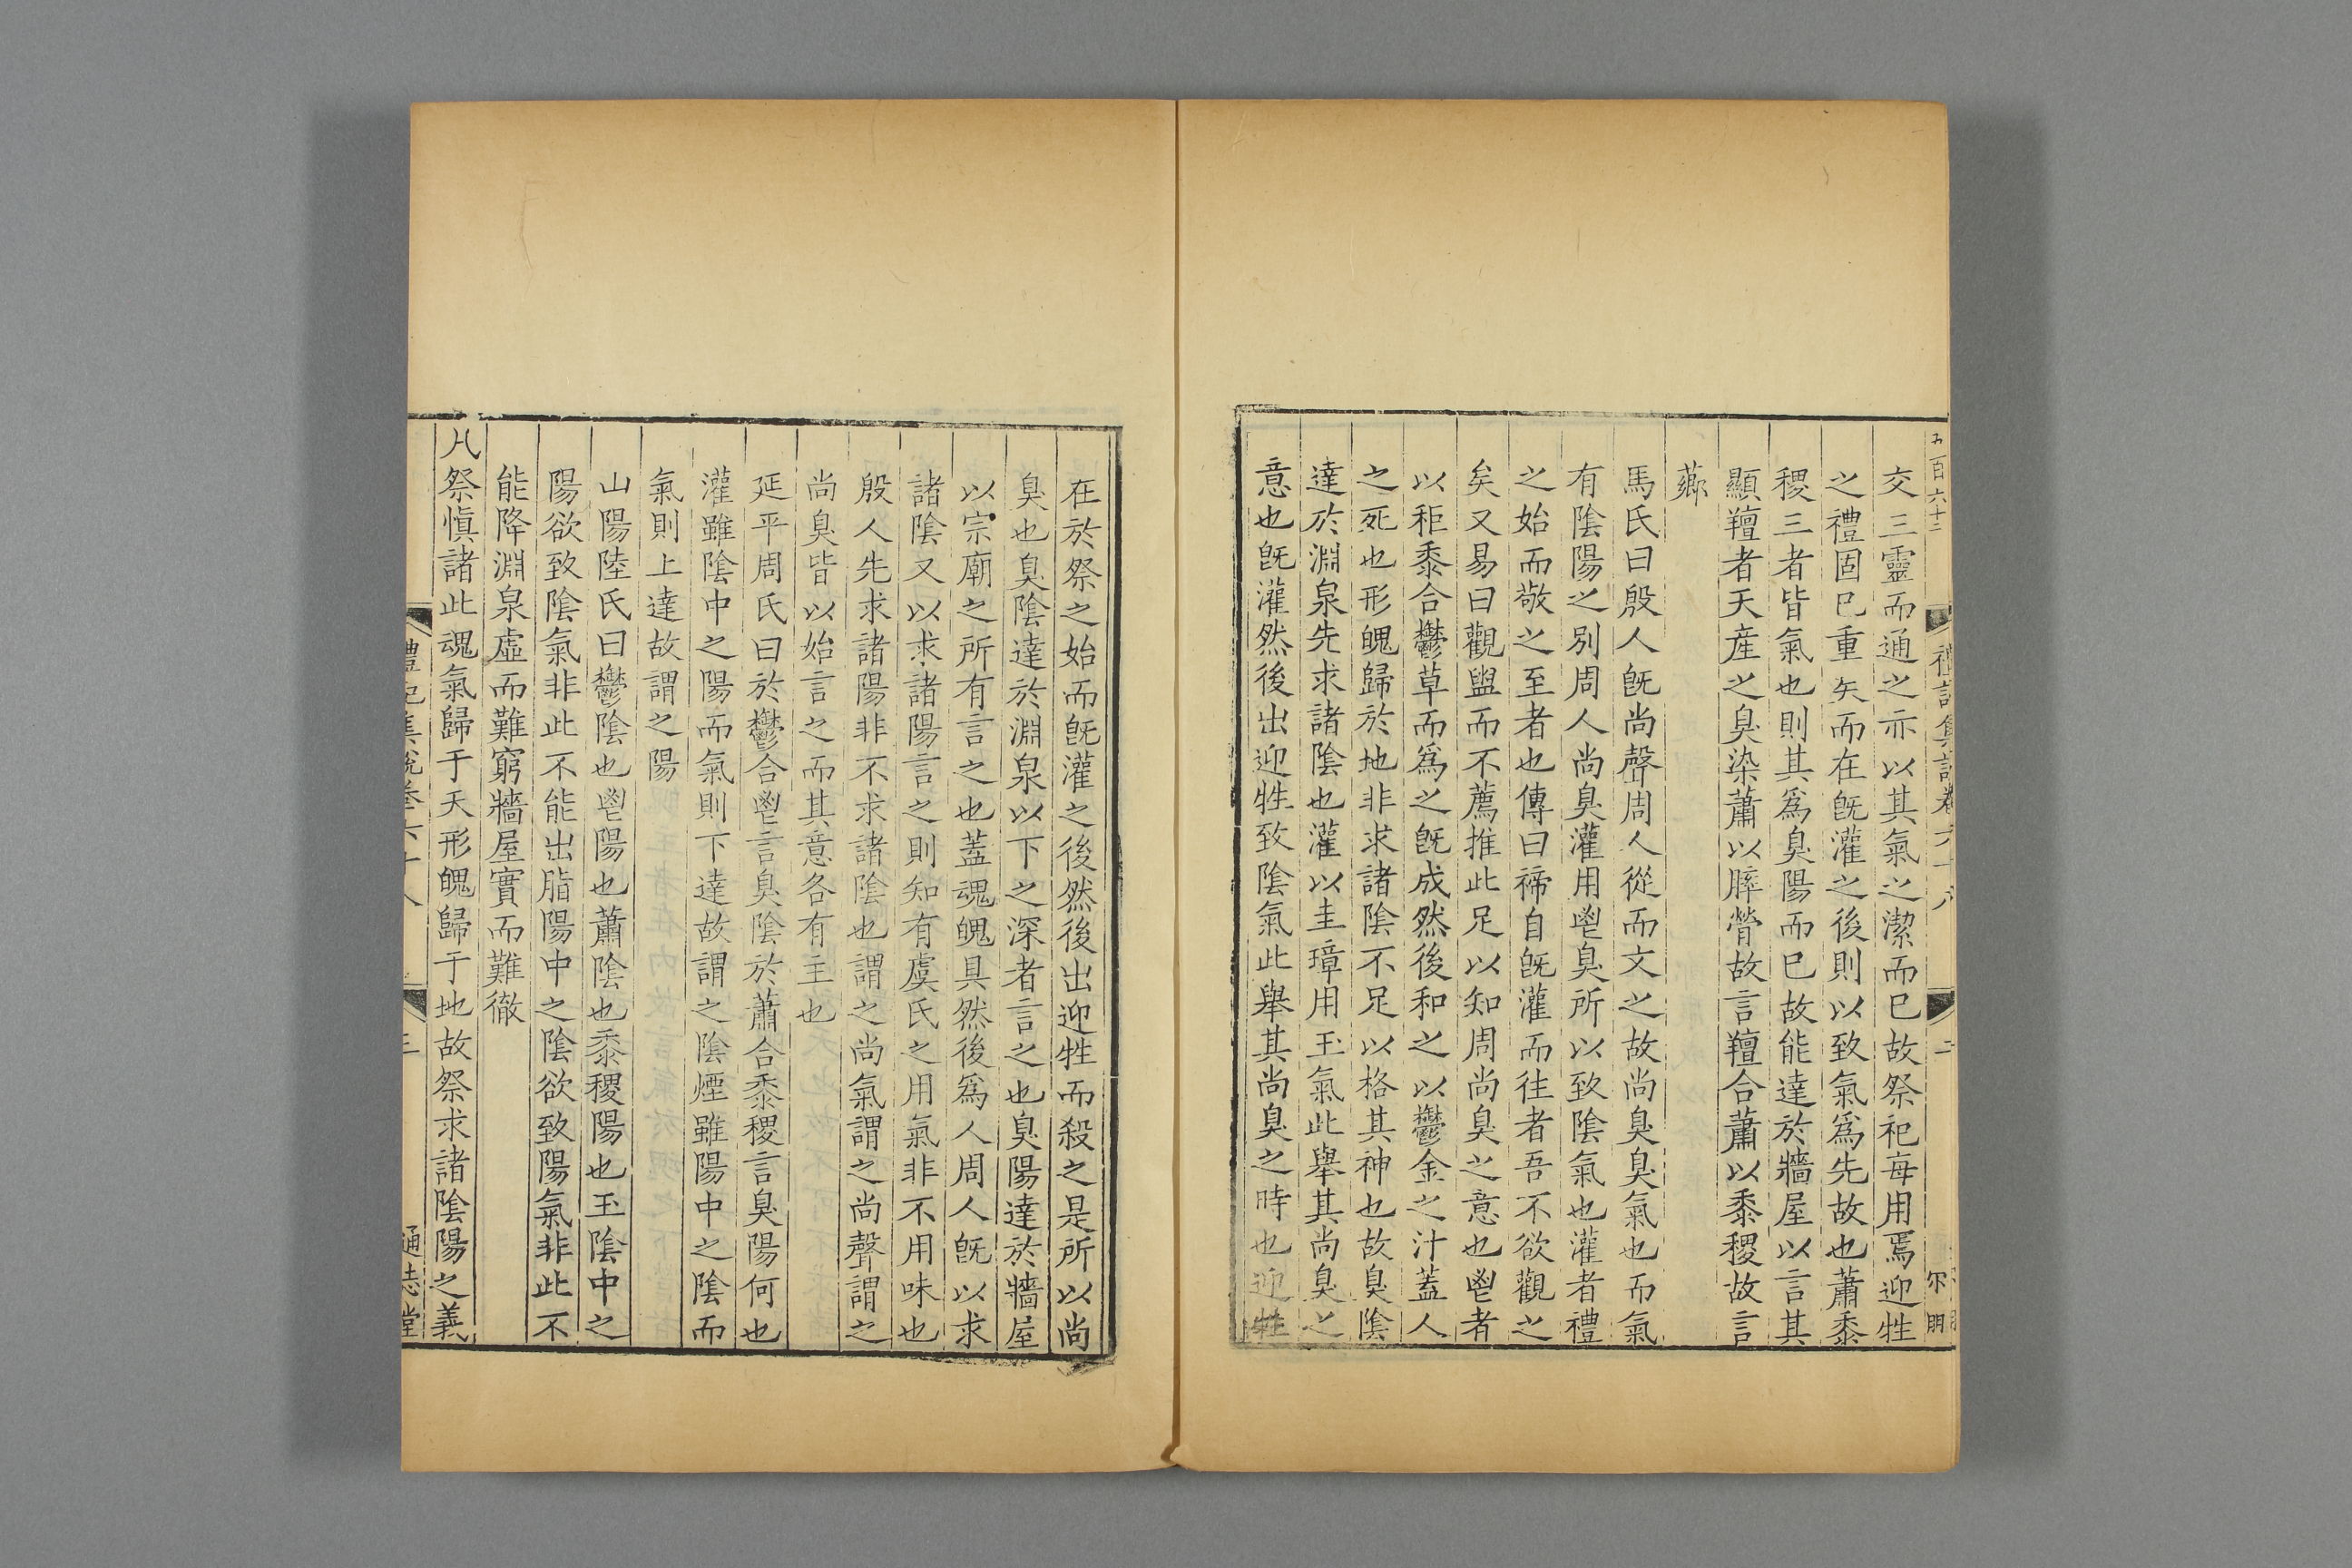 五百六十二
禮記集說卷六十八
二
尔明
交三靈而通之亦以其氣之潔而巳故祭祀每用焉迎牲
之禮固巳重矣而在旣灌之後則以致氣爲先故也蕭黍
稷三者皆氣也則其爲臭陽而巳故能達於牆屋以言其
顯羶者天産之臭染蕭以膟膋故言羶合蕭以黍稷故言
薌
馬氏曰殷人旣尚聲周人從而文之故尚臭臭氣也而氣
有陰陽之別周人尚臭灌用鬯臭所以致陰氣也灌者禮
之始而敬之至者也傳曰禘自旣灌而往者吾不欲觀之
矣又易曰觀盥而不薦推此足以知周尚臭之意也鬯者
以秬黍合鬱草而爲之旣成然後和之以鬱金之汁蓋人
之死也形魄歸於地非求諸陰不足以格其神也故臭陰
達於淵泉先求諸陰也灌以圭璋用玉氣此舉其尚臭之
意也旣灌然後出迎牲致陰氣此舉其尚臭之時也迎牲
在於祭之始而旣灌之後然後出迎牲而殺之是所以尚
臭也臭陰達於淵泉以下之深者言之也臭陽達於牆屋
以宗廟之所有言之也蓋魂魄具然後爲人周人旣以求
諸陰又以求諸陽言之則知有虞氏之用氣非不用味也
殷人先求諸陽非不求諸陰也謂之尚氣謂之尚聲謂之
尚臭皆以始言之而其意各有主也
延平周氏曰於鬱合鬯言臭陰於蕭合黍稷言臭陽何也
灌雖陰中之陽而氣則下達故謂之陰煙雖陽中之陰而
氣則上達故謂之陽
山陽陸氏曰鬱陰也鬯陽也蕭陰也黍稷陽也玉陰中之
陽欲致陰氣非此不能出脂陽中之陰欲致陽氣非此不
能降淵泉虛而難窮牆屋實而難徹
凡祭愼諸此魂氣歸于天形魄歸于地故祭求諸陰陽之義
禮記集說卷六十八
三
通志堂